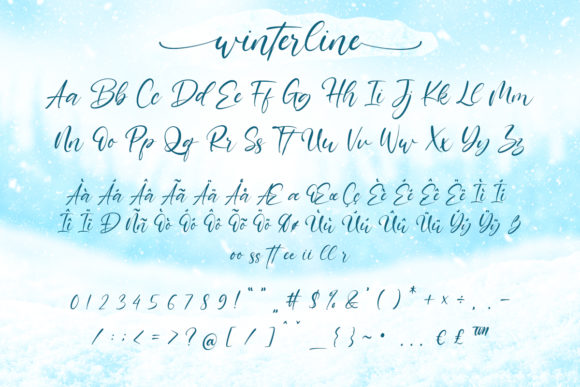 winterline
Aa Bb Cc Dd Ee Ff Gg Hh Ii Jj Kk Ll Mm
Nn Oo Pp Qq Rr Ss Tt Uu Vv Ww Xx Yy Zz
Àà Áá Ââ Ãã Ää Åå Æ æ Œœ Çç Èè Éé Êê Ëë Ìì Íí
Îî Ïï Ð Ññ Òò Óó Ôô Õõ Öö Øø Ùù Úú Ûû Üü Ýý Ÿÿ
oo ss tt ee ii ll r
0 1 2 3 4 5 6 7 8 9 ! “ ” „ # $ % & ' ( ) * + × ÷ , . -
/ : ; < = > ? @ [ / ] ˆ ˇ _ { } ~ • … € £ ™